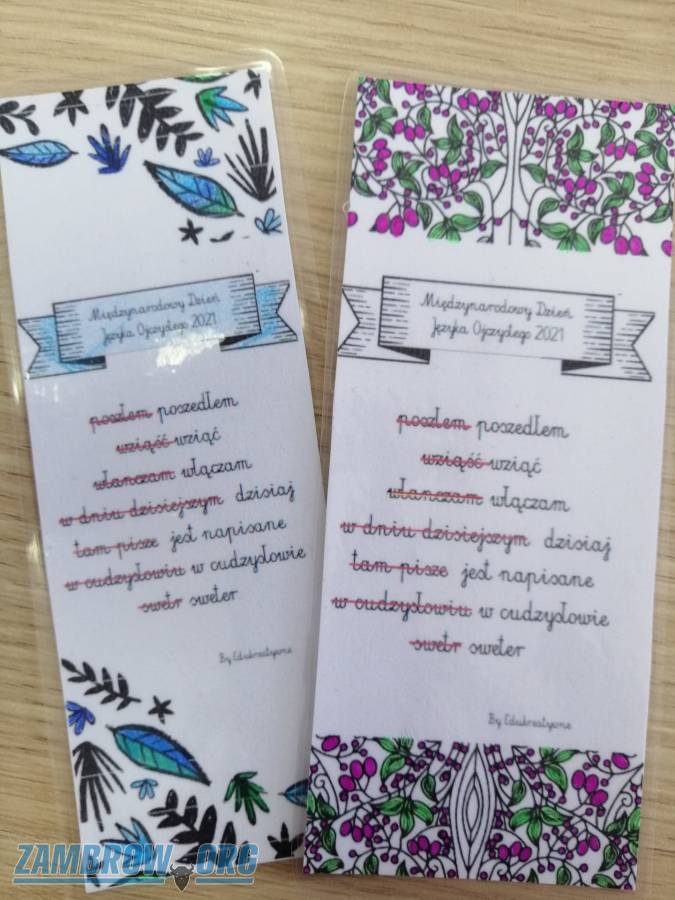 Międzynarodowy Dzień
Języka Ojczystego 2021
poszłem poszedłem
wziąść wziąć
włanczam włączam
w dniu dzisiejszym dzisiaj
tam pisze jest napisane
w cudzysłowiu w cudzysłowie
swetr sweter
By Edukreatywne
Międzynarodowy Dzień
Języka Ojczystego 2021
poszłem poszedłem
wziąść wziąć
włanczam włączam
w dniu dzisiejszym dzisiaj
tam pisze jest napisane
w cudzysłowiu w cudzysłowie
swetr sweter
By Edukreatywne
ZAMBROW.ORG